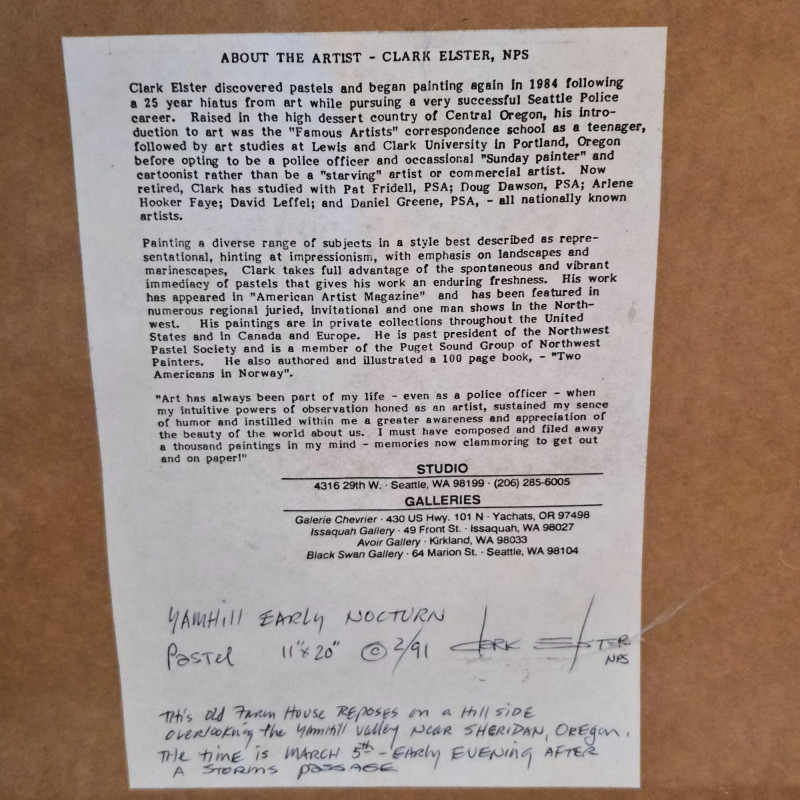 ABOUT THE ARTIST - CLARK ELSTER, NPS
Clark Elster discovered pastels and began painting again in 1984 following
a 25 year hiatus from art while pursuing a very successful Seattle Police
career. Raised in the high dessert country of Central Oregon, his intro-
duction to art was the "Famous Artists" correspondence school as a teenager,
followed by art studies at Lewis and Clark University in Portland, Oregon
before opting to be a police officer and occassional "Sunday painter" and
cartoonist rather than be a "starving" artist or commercial artist. Now
retired, Clark has studied with Pat Fridell, PSA; Doug Dawson, PSA; Arlene
Hooker Faye; David Leffel; and Daniel Greene, PSA, - all nationally known
artists.
Painting a diverse range of subjects in a style best described as repre-
sentational, hinting at impressionism, with emphasis on landscapes and
marinescapes, Clark takes full advantage of the spontaneous and vibrant
immediacy of pastels that gives his work an enduring freshness. His work
has appeared in "American Artist Magazine" and has been featured in
numerous regional juried, invitational and one man shows in the North-
west. His paintings are in private collections throughout the United
States and in Canada and Europe. He is past president of the Northwest
Pastel Society and is a member of the Puget Sound Group of Northwest
Painters. He also authored and illustrated a 100 page book, - "Two
Americans in Norway".
"Art has always been part of my life - even as a police officer - when
my intuitive powers of observation honed as an artist, sustained my sence
of humor and instilled within me a greater awareness and appreciation of
the beauty of the world about us. I must have composed and filed away
a thousand paintings in my mind - memories now clammoring to get out
and on paper!"
STUDIO
4316 29th W. · Seattle, WA 98199 · (206) 285-6005
GALLERIES
Galerie Chevrier · 430 US Hwy. 101 N · Yachats, OR 97498
Issaquah Gallery · 49 Front St. · Issaquah, WA 98027
Avoir Gallery · Kirkland, WA 98033
Black Swan Gallery · 64 Marion St. · Seattle, WA 98104
YAMHILL EARLY NOCTURN
PASTEL 11"x20" © 2/91 CLARK ELSTER
NPS
THIS OLD FARM HOUSE REPOSES ON A HILLSIDE
OVERLOOKING THE YAMHILL VALLEY NEAR SHERIDAN, OREGON.
THE TIME IS MARCH 5th - EARLY EVENING AFTER
A STORMS PASSAGE